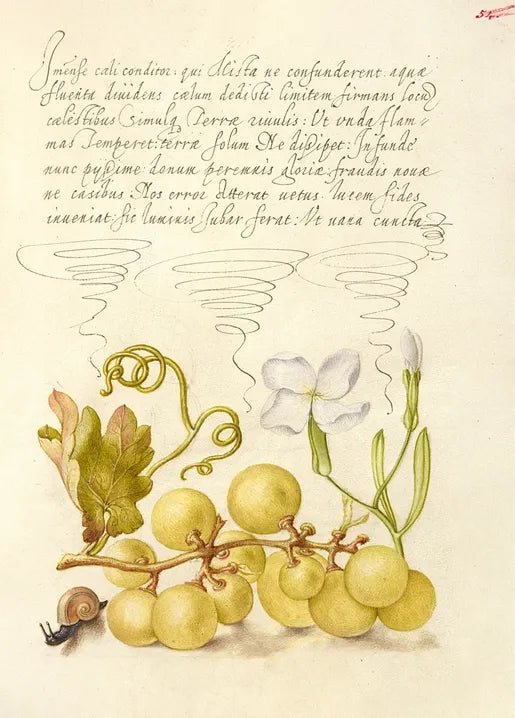 54
Imense cæli conditor: qui Mista ne confunderent aquæ
fluenta diuidens cælum dedisti limitem firmans locū
cælestibus Simulq. Terræ riuulis: Ut vnda flam-
mas Temperet: terræ solum Ne dissipet: Infunde
nunc pyssime: donum peremnis gloriæ: fraudis nouæ
ne casibus: Nos error Atterat vetus. lucem fides
inueniat: sic luminis Iubar ferat: Ut vana cuncta